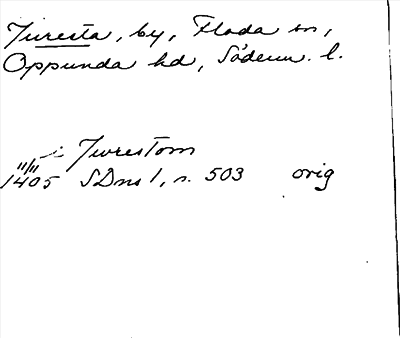 Juresta, by, Floda sn,
Oppunda hd, Söderm. l.
i Jwrestom
11/11
1405 SDns 1, s. 503 orig